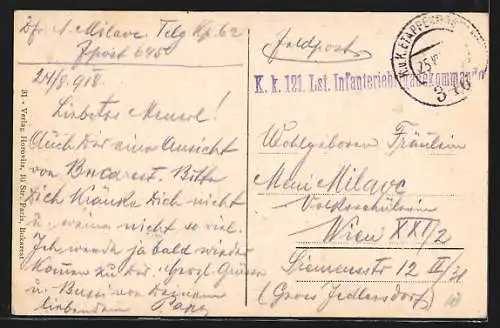 A. Milavc. Telg Kp. 62
Fpost 645
24/8. 918.
Liebstes Menerl!
Auch Dir eine Ansicht
von Bucarest. Bitte
Dich kränke Dich nicht
u. weine nicht so viel.
Ich werde ja bald wieder
kommen zu Dir. Grüsse
u. Bussi von Deinem
liebenden Papa
31 - Verlag Horovitz, 10 Str. Paris, Bukarest
Feldpost
K. k. 121. Lst. Infanteriebrigadekommando
K.u.K. ETAPPENPOSTAMT
25.
Wohlgeboren Fräulein
Meni Milavc
Volksschülerin
Wien XXI/2
Siemensstr 12 II/31
(Gross Jedlersdorf)